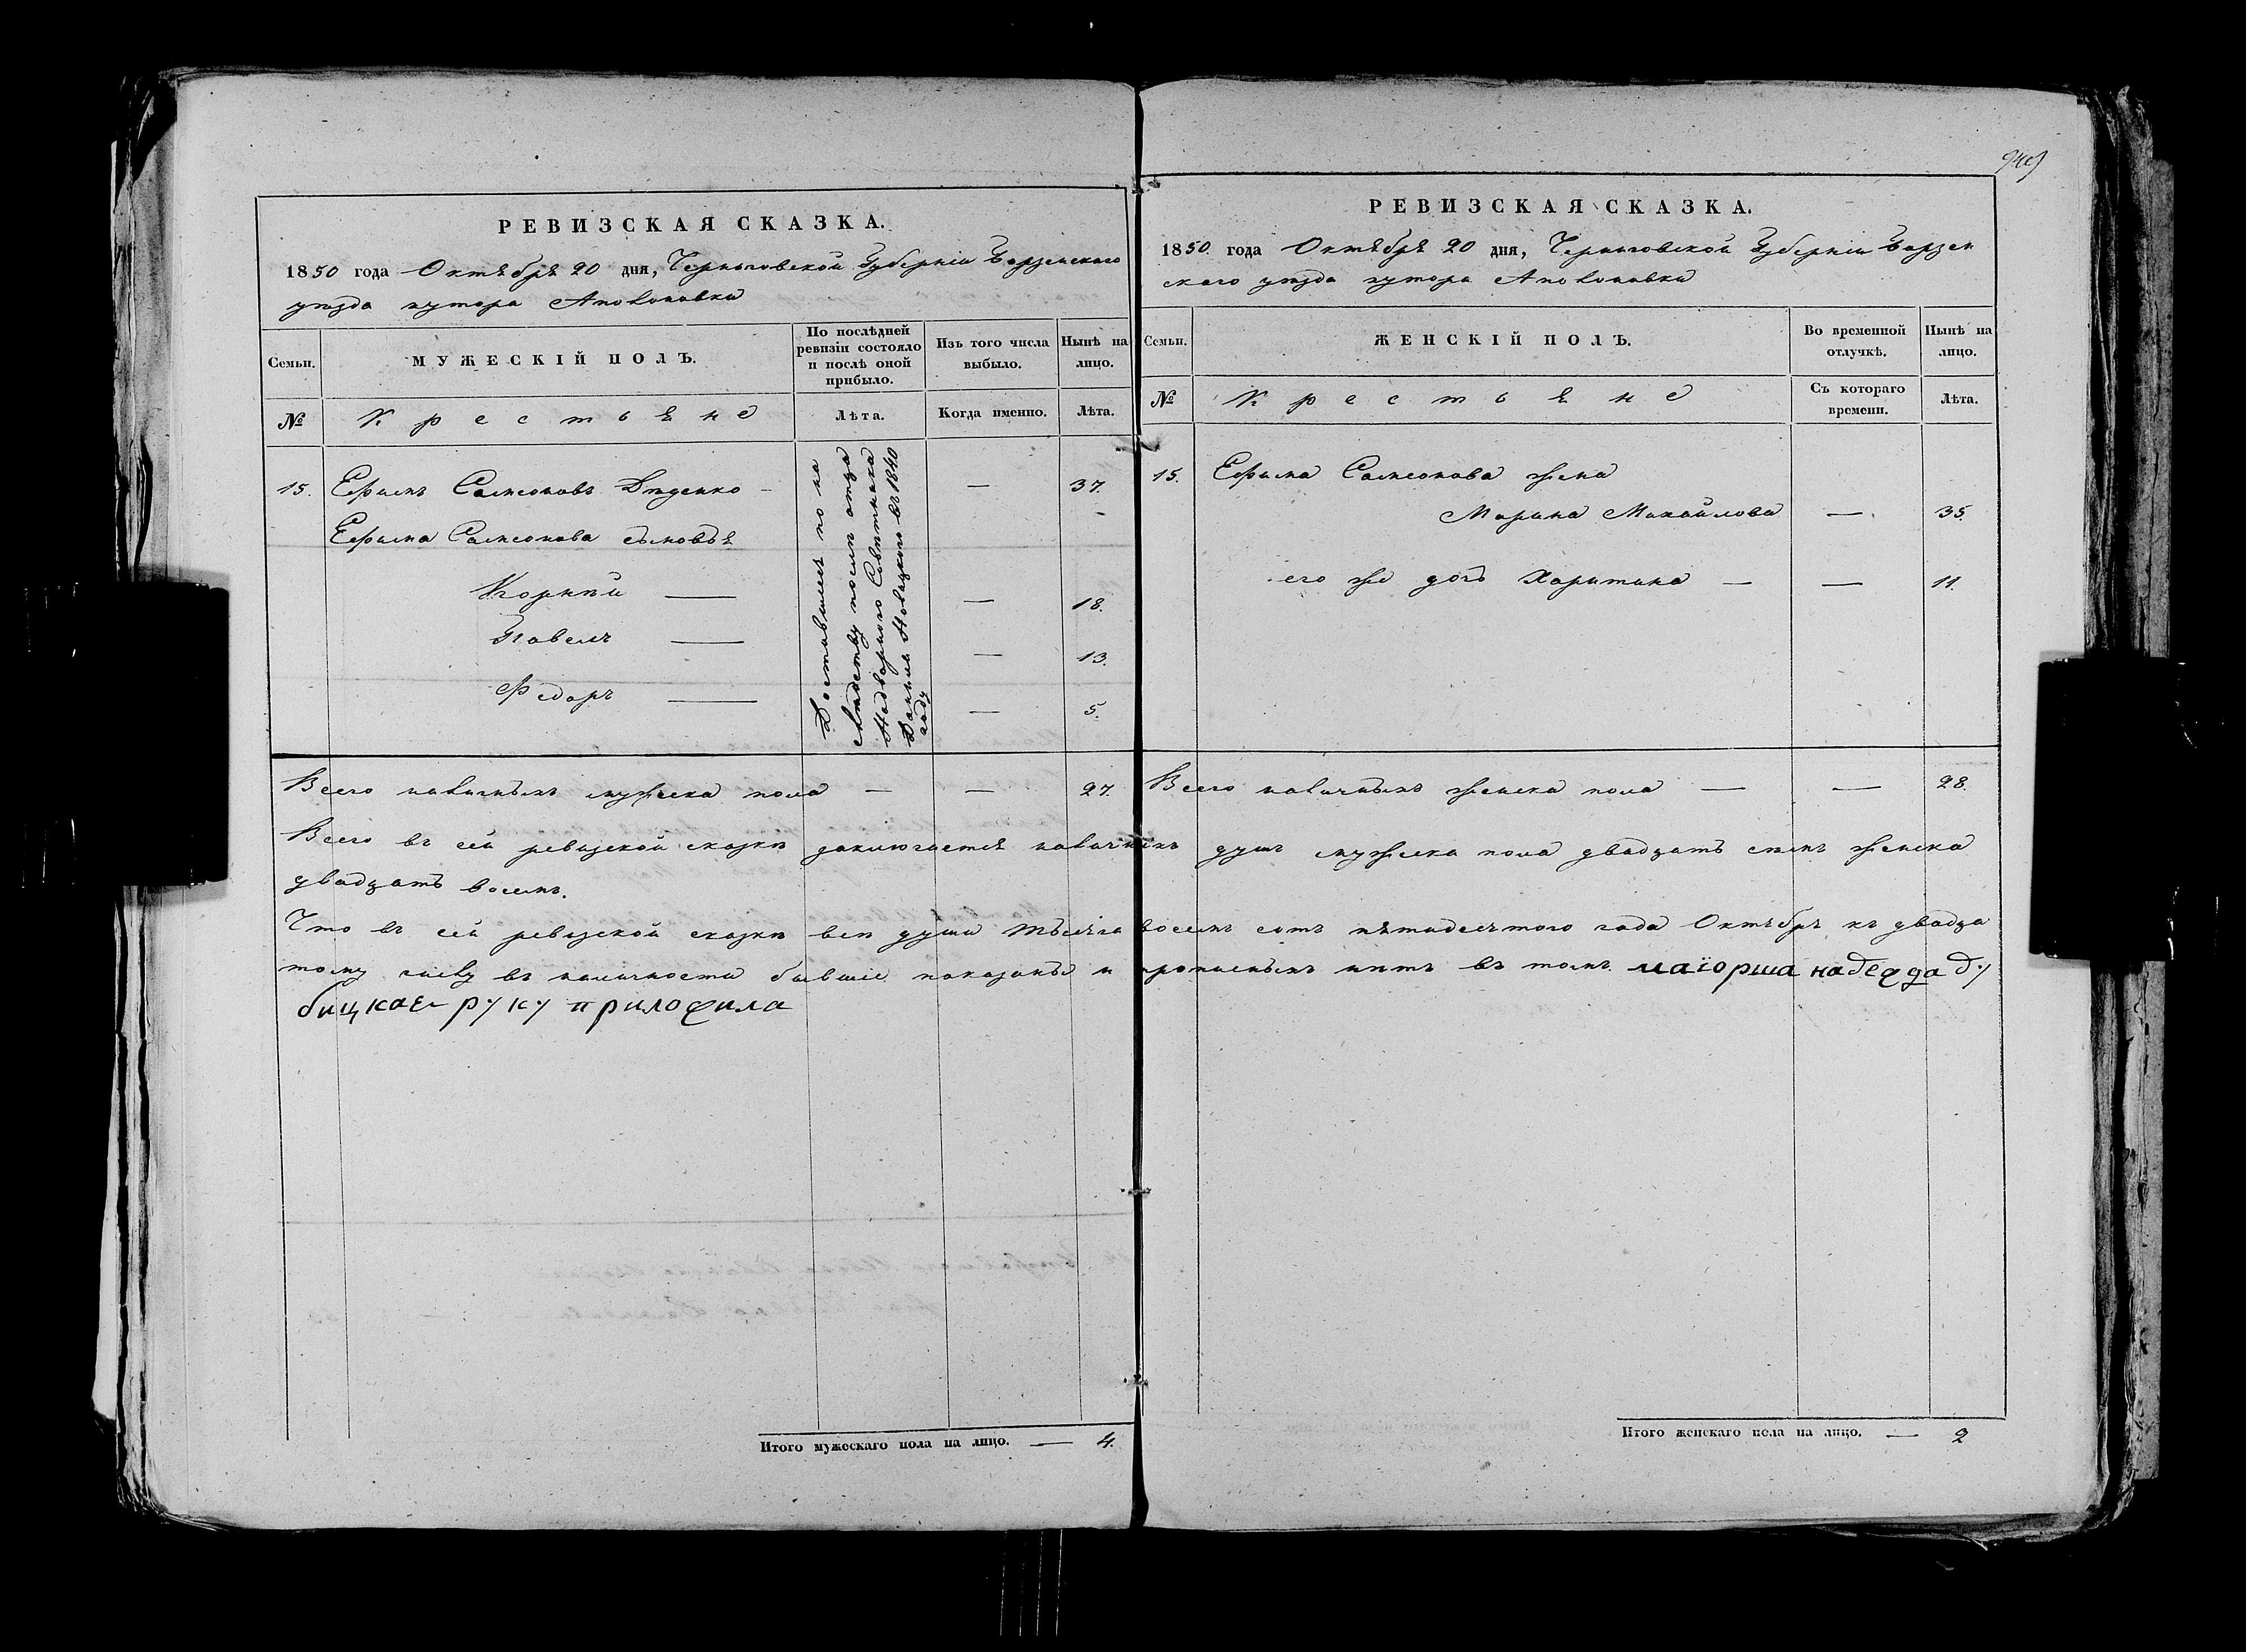 РЕВИЗСКАЯ СКАЗКА.
1850 года Октября 20 дня, Черниговской Губерніи Борзенскаго
уѣзда хутора
Семьи.
МУЖЕСКІЙ ПОЛЪ.
По послѣдней ревизіи состояло и послѣ оной прибыло.
Изъ того числа выбыло.
Нынѣ на лицо.
№
Крестьяне
Лѣта.
Когда именно.
Лѣта.
15. Ефимъ Самсоновъ Дяденко — 37.
Ефима Самсонова сыновья
Корній — — 18.
Павелъ — — 13.
Федоръ — — 5.
Доставшіеся по на
слѣдству послѣ отца
Надворного Совѣтника
Данила Новицкого въ 1840
году
Всего наличныхъ мужеска пола — — 27.
РЕВИЗСКАЯ СКАЗКА.
1850. года Октября 20 дня, Черниговской Губерніи Борзен
скаго уѣзда хутора
Семьи.
ЖЕНСКІЙ ПОЛЪ.
Во временной отлучкѣ.
Нынѣ на лицо.
№
Крестьяне
Съ котораго времени.
Лѣта.
15. Ефима Самсонова жена
Марина Михайлова — 35.
его же дочь Харитина — — 11.
Всего наличныхъ женска пола — — 28.
Всего въ сей ревизской сказкѣ заключается наличныхъ душъ мужеска пола двадцать семь женска
двадцать восемь.
Что въ сей ревизской сказкѣ всѣ души тысяча восемь сотъ пятидесятого года Октября къ двадца
тому числу въ наличности бывшіе показаны и прописныхъ нѣтъ въ томъ маіорша надежда ду
бицкая руку приложила
Итого мужескаго пола на лицо. — 4.
Итого женскаго пола на лицо. — 2